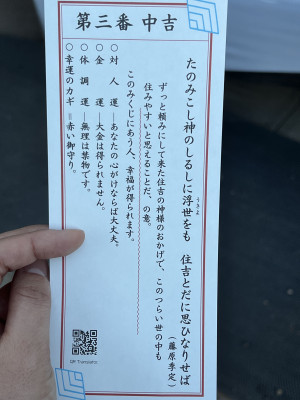 第三番 中吉
たのみこし神のしるしに浮世をも 住吉とだに思ひなりせば
うきよ
(藤原季定)
ずっと頼みにして来た住吉の神様のおかげで、このつらい世の中も
住みやすいと思えることだ、の意。
このみくじにあう人、幸福が得られます。
○対人運―あなたの心がけならば大丈夫。
○金運―大金は得られません。
○体調運―無理は禁物です。
○幸運のカギ=赤い御守り。
QR Translate